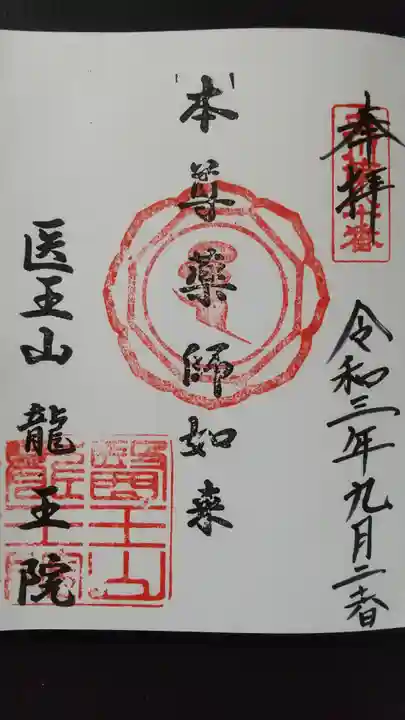 奉拝
令和三年九月二十日
本尊薬師如来
医王山龍王院
醫王山
龍王院